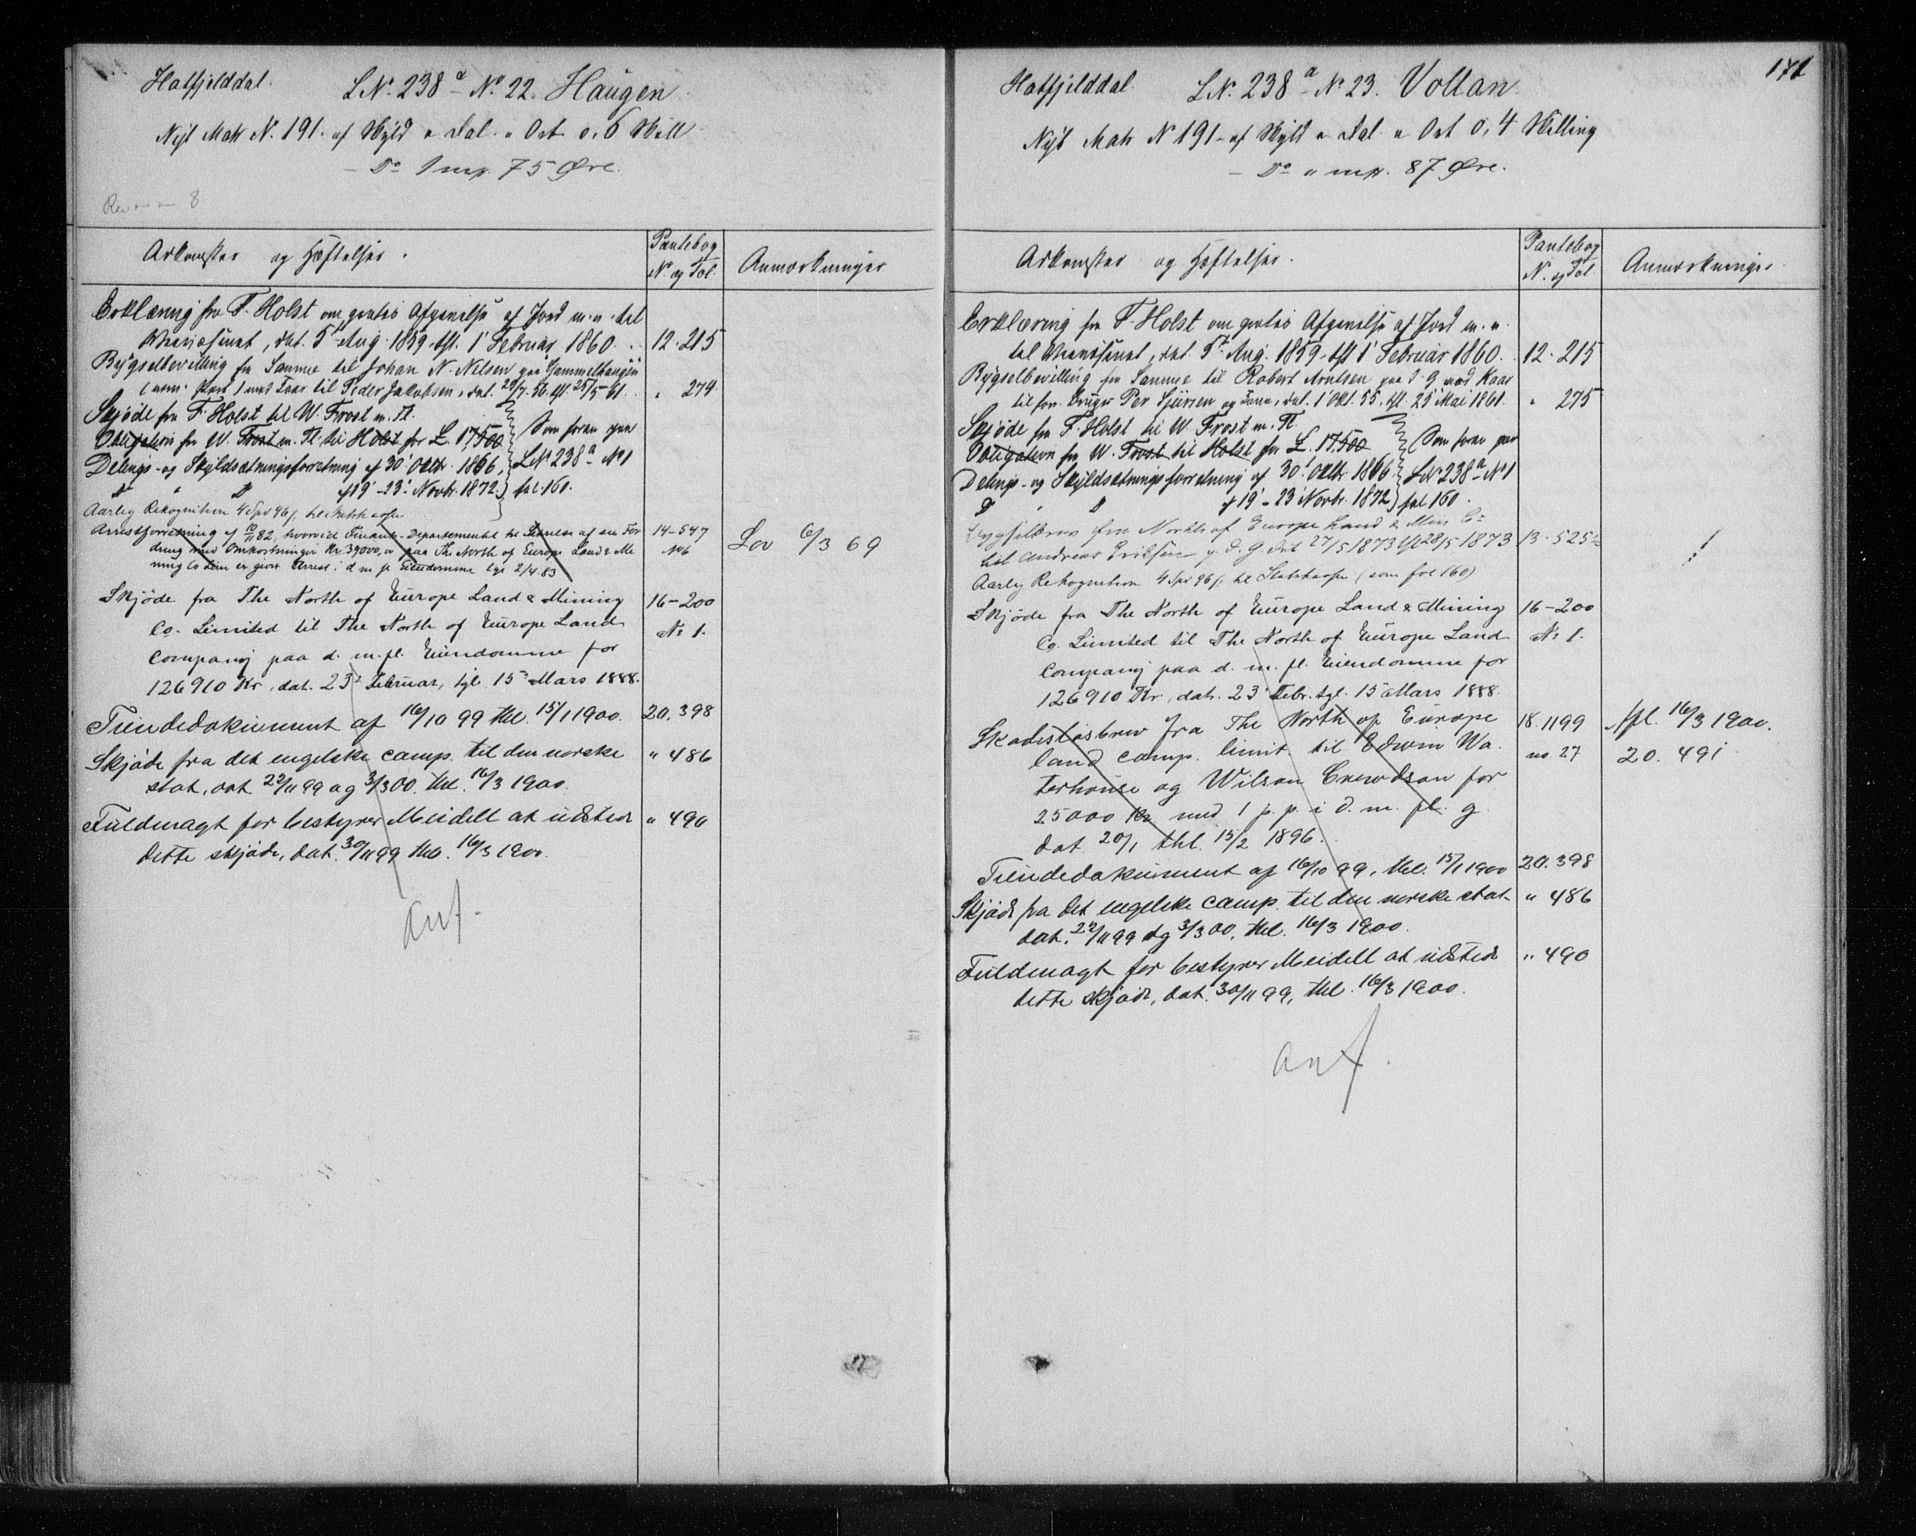 Hatfjelddal. LN. 238 a - No. 22. Haugen.
Nyt Matr N. 191. af Skyld " Dal. " Ort o, 6 Skill
- Do 1 mp. 75 Øre.
8
Adkomster og Hæftelser. Pantebog N. og Fol Anmærkninger
Erklæring fra F. Holst om gratis Afgivelse af Jord m.v. til
dat. 5te Aug. 1859, tgl. 1' Februar 1860. 12-215
Bygselbevilling fra Samme til Johan N. Nielsen paa Gammelhaugen
med Kaar til Peder Jakobsen, dat. 28/7. 56. tgl 25/5-61. " 274
Skjøde fra F. Holst til W. Frost m. Fl.
Obligation fra W. Frost m. Fl. til Holst for £ 17,500 Som foran paa
Delings- og Skyldsætningsforretning af 30' Oktbr. 1866, LN 238 a No 1
D " D af 19'-23' Novbr. 1872 fol. 160.
Aarlig Rekognition 4 Spd 96 s. til Statskassen
Arrestforretning af 10/11 82, hvorved Finants-Departementet til Dækelse af en For 14-547
dring med Omkostninger Kr 39000, paa The North of Europe Land & Mi No 6 Lov 6/3 69
ning Co Lim er gjort Arrest i d. m. fl. Eiendomme tgl 2/4.83
Skjøde fra The North of Europe Land & Mining 16-200
Co. Limited til The North of Europe Land No 1.
Company paa d. m. fl. Eiendomme for
126910 Kr, dat. 23' Februar, tgl. 15' Mars 1888.
Tiendedokument af 16/10 99 thl. 15/1 1900. 20. 398
Skjøde fra det engelske comp. til den norske " 486
stat, dat. 22/11 99 og 3/3 00. thl. 16/3 1900.
Fuldmagt for bestyrer Meidell at udstede " 490
dette skjøde, dat. 30/11 99 thl. 16/3 1900.
Anf.
171
Hatfjelddal. LN. 238 a - No 23. Voltan.
Nyt Matr N 191 - af Skyld " Dal. " Ort 0, 4 Skilling
- Do " mp. 87 Øre.
Adkomster og Hæftelser. Pantebog N. og Fol Anmærkninger.
Erklæring fra F. Holst om gratis Afgivelse af Jord m. v.
til dat. 5te Aug. 1859, tgl 1' Februar 1860. 12-215
Bygselbevilling fra Samme til Robert Arntsen paa d. G. mod Kaar
til for. Bruger Per Sjursen og Kone, dat. 1' Okt. 55. tgl. 25' Mai 1861. " 275
Skjøde fra F. Holst til W. Frost m. Fl.
Obligation fra W. Frost til Holst for £. 17.500 Som foran paa
Delings- og Skyldsætningsforretning af 30' Oktbr 1866. LN 238 a No 1
D " D af 19'-23' Novbr. 1872 fol 160.
Bygselbrev fra North of Europe Land & Min Co
til Andreas Eriksen p. d. G. dat 27/5 1873 tgl 28/5 1873 13-525 !
Aarlig Rekognition 4 Spd 96 s. til Statskassen (som fol 160)
Skjøde fra The North of Europe Land & Mining 16-200
Co. Limited til The North of Europe Land No 1.
Company paa d. m. fl. Eiendomme for
126910 Kr, dat. 23' Febr. tgl. 15' Mars 1888.
Skadesløsbrev fra The North of Europe 18. 1199 Afl. 16/3 1900.
land comp. limit. til Edwin Wa- no 27 20. 491
terhouse og Wilson Crewdson for
25000 Kr med 1 p. p. i d. m. fl. g.
dat 20/1 thl. 15/2 1896.
Tiendedokument af 16/10 99, thl. 15/1 1900 20. 398
Skjøde fra det engelske comp. til den norske stat " 486
dat. 22/11 99 og 3/3 00, thl. 16/3 1900.
Fuldmagt for bestyrer Meidell at udstede " 490
dette skjøde, dat. 30/11 99, thl. 16/3 1900.
Anf.